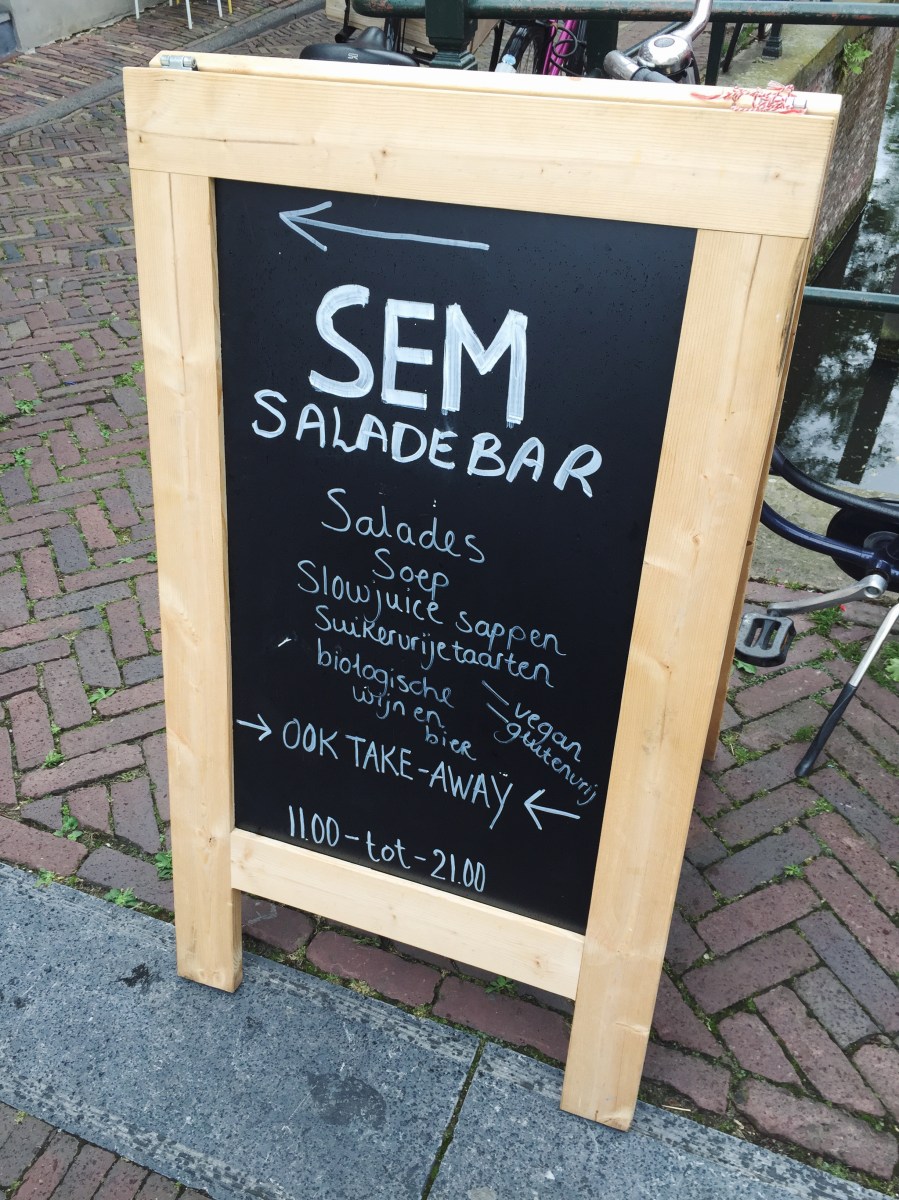 SEM
SALADEBAR
Salades
Soep
Slowjuice sappen
Suikervrije taarten
biologische
wijn en
bier
vegan
glutenvrij
OOK TAKE-AWAY
11.00 - tot - 21.00